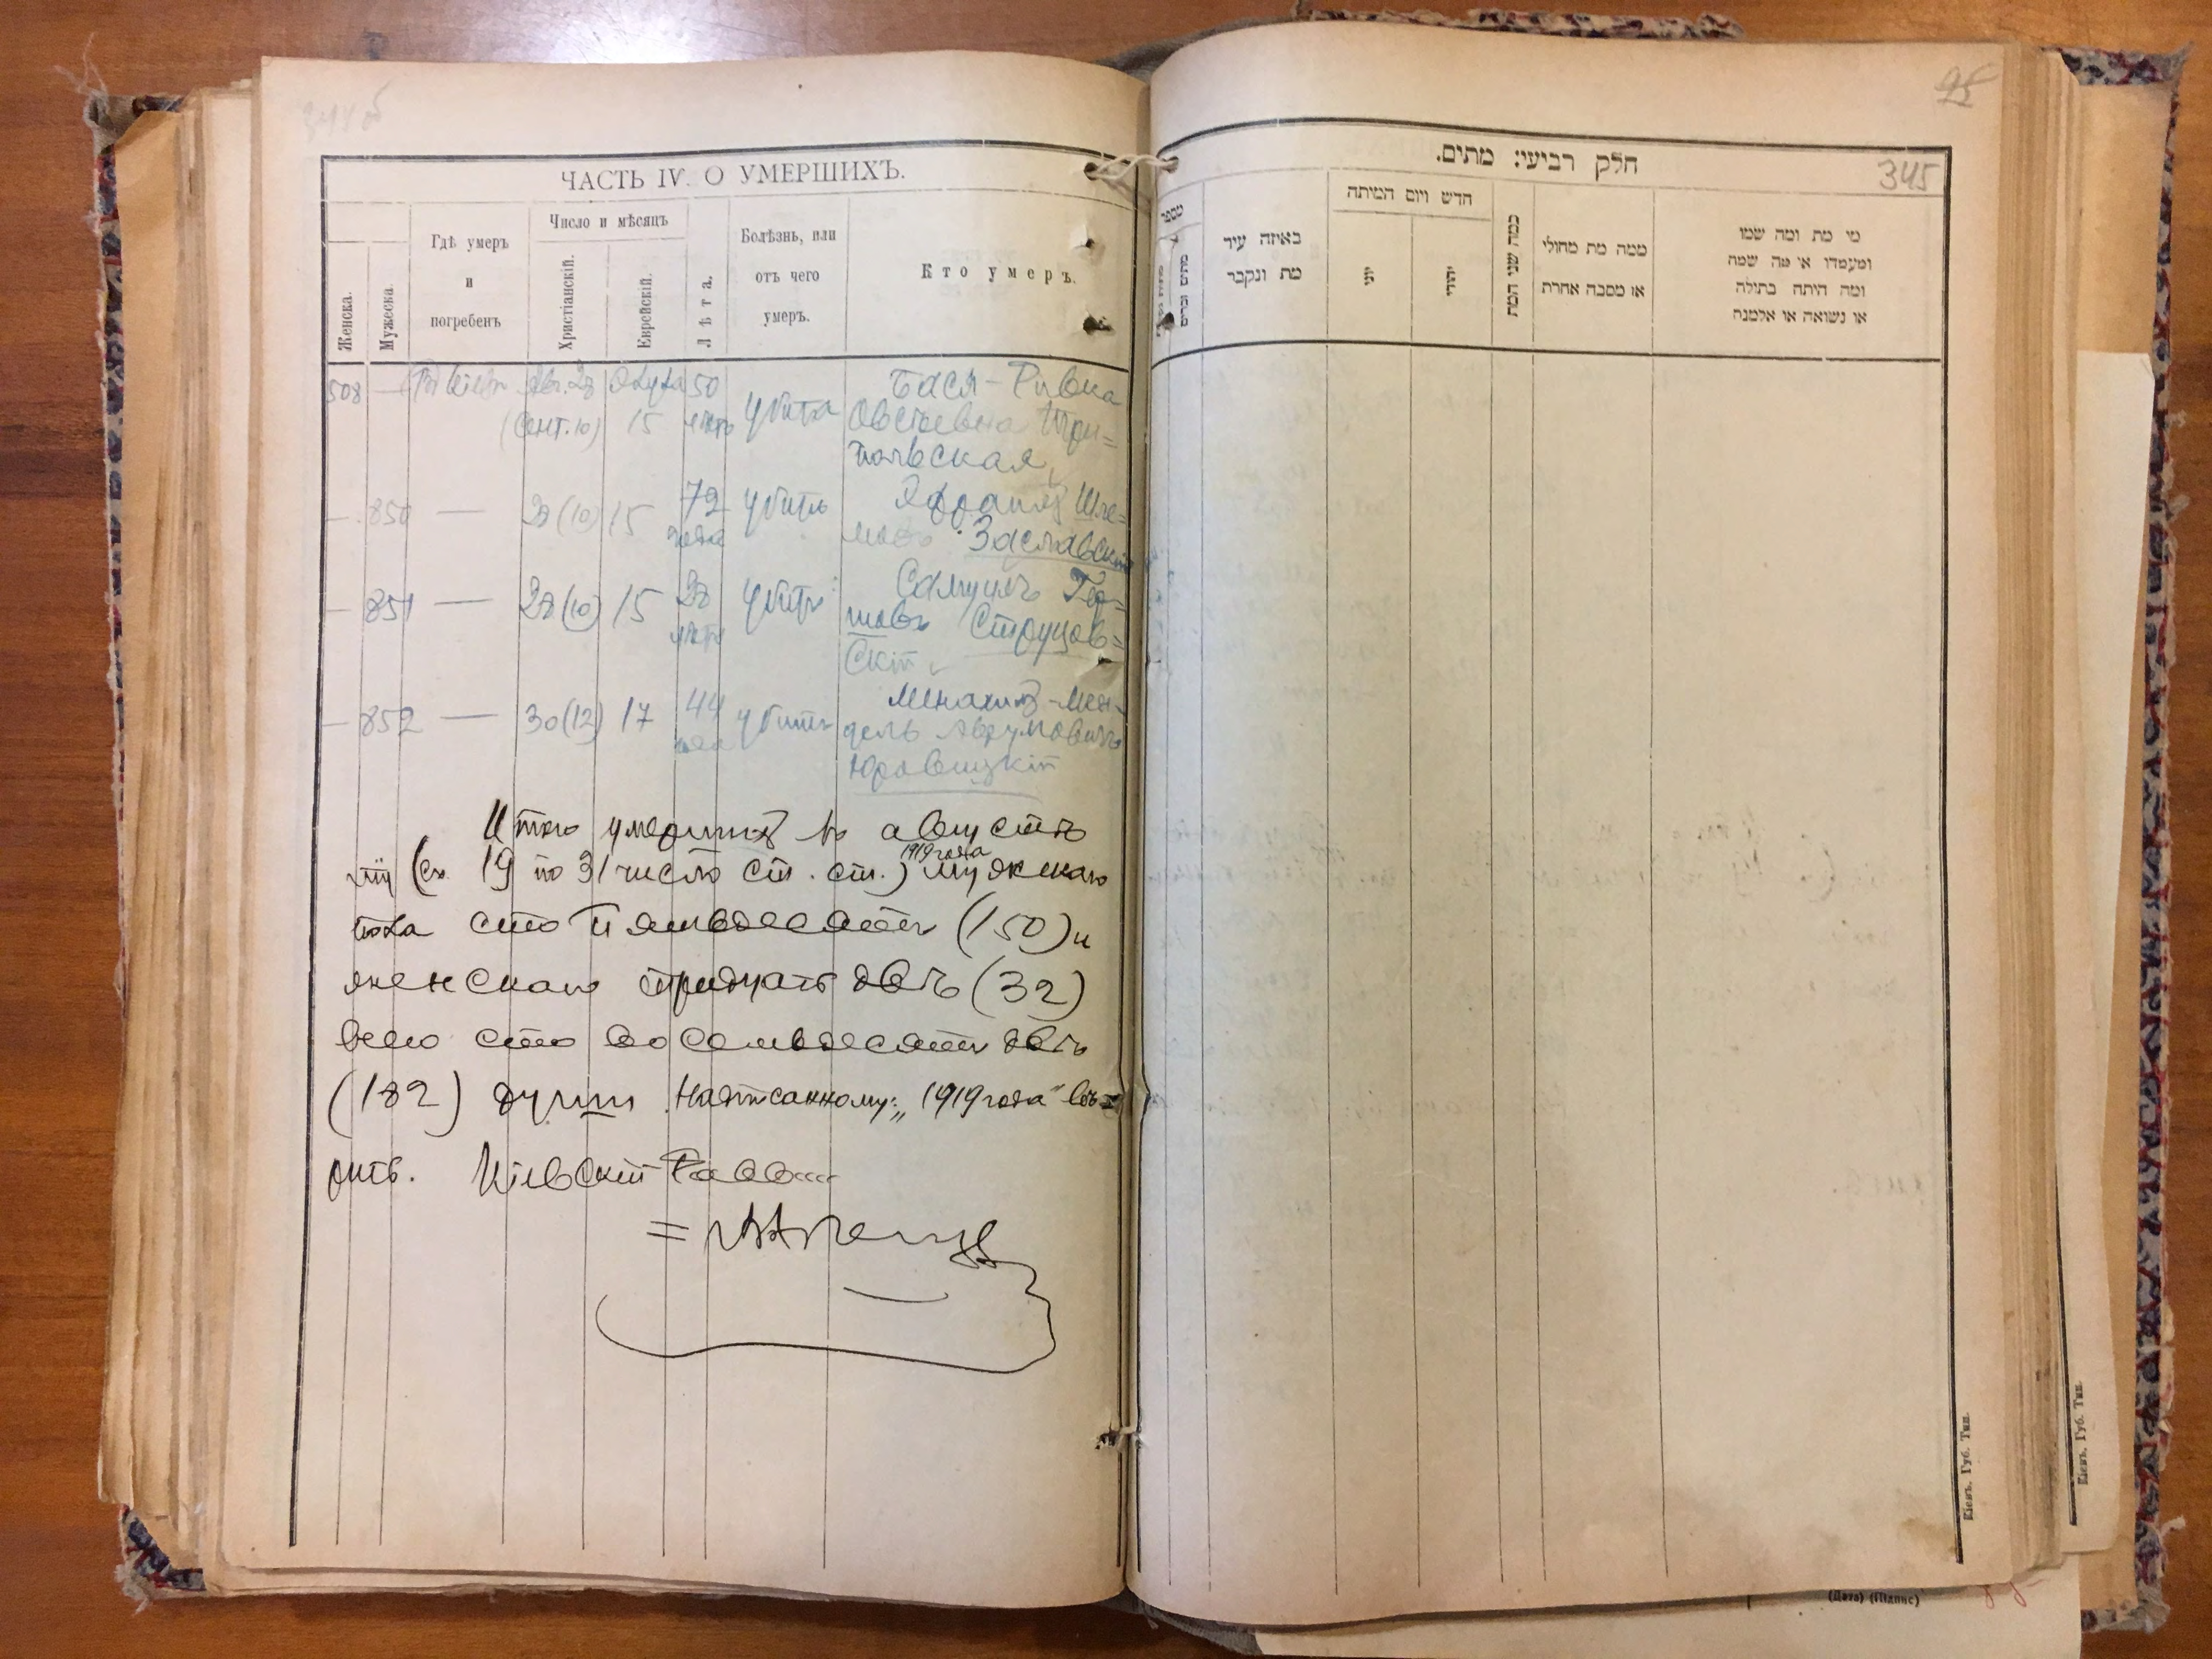 344 об
ЧАСТЬ IV. О УМЕРШИХЪ.
Женска.
Мужеска.
Гдѣ умеръ
и
погребенъ
Число и мѣсяцъ
Христіанскій.
Еврейскій.
Лѣта.
Болѣзнь, или
отъ чего
умеръ.
Кто умеръ.
508 — Въ Кіевѣ Авг. 28 Элула 50 Бася-Ривка
(Сент. 10) 15 лѣтъ убита Овсѣевна Три=
польская
— 850 — 28 (10) 15 72 убитъ Эфраимъ Шле=
года мовъ Заславскій
— 851 — 28 (10) 15 28 убитъ Самуилъ Гер=
лѣтъ шовъ Струцов=
скій
— 852 — 30 (12) 17 44 убитъ Менахимъ-Мен-
года дель Аврумовичъ
Юровицкій
Итого умершихъ въ августѣ
м-цѣ (съ 19 по 31 число ст. ст.) 1919 года мужскаго
пола сто пятьдесятъ (150) и
женскаго тридцать двѣ (32)
всего сто восемьдесятъ двѣ
(182) души. Надписанному: „1919 года" вѣ-
рить. Кіевскій Раввинъ
95
345
חלק רביעי: מתים.
מספר
מתים זכרים
באיזה עיר
מת ונקבר
חדש ויום המיתה
יוני
יהודי
כמה שני המת
ממה מת מחולי
או מסבה אחרת
מי מת ומה שמו
ומעמדו או מה שמה
ומה היתה בתולה
או נשואה או אלמנה
Кіевъ. Губ. Тип.
Кіевъ. Губ. Тип.
(Дата) (Підпис)